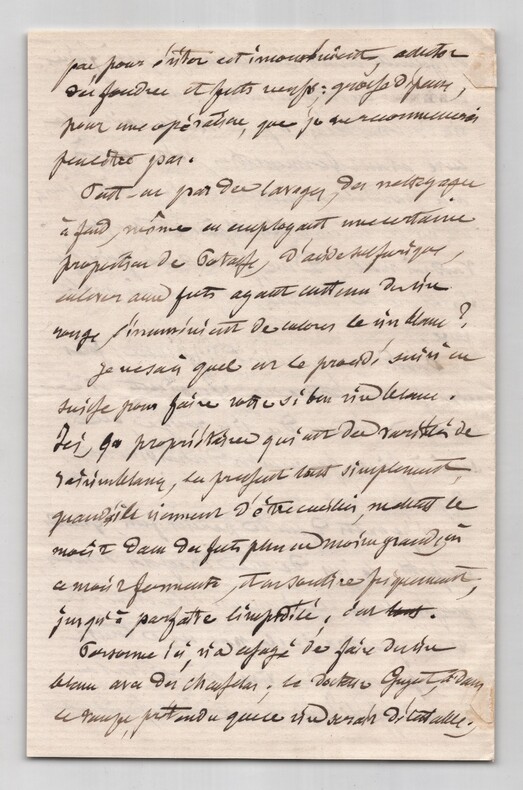 pas pour éviter cet inconvénient, acheter
des foudres et futs neufs; grosse dépense,
pour une opération, que je ne recommencerais
peut être pas.
Peut-on par des lavages, des nettoyages
à fond, même en employant une certaine
proportion de Potasse, d'acide sulfurique,
enlever aux futs ayant contenu du vin
rouge l'inconvénient de colorer le vin blanc?
Je ne sais quel est le procédé suivi en
suisse pour faire votre si bon vin blanc.
Ici, les propriétaires qui ont des variétés de
raisin blanc, les pressent tout simplement,
quand ils viennent d'être cueillis, mettent le
moût dans des futs plus ou moins grands, où
ce moût fermente, et on soutire fréquemment,
jusqu'à parfaite limpidité, c'est tout.
Personne ici, n'a essayé de faire du vin
blanc avec des ; le docteur Guyot, dans
le temps, prétendu que ce vin serait détestable;